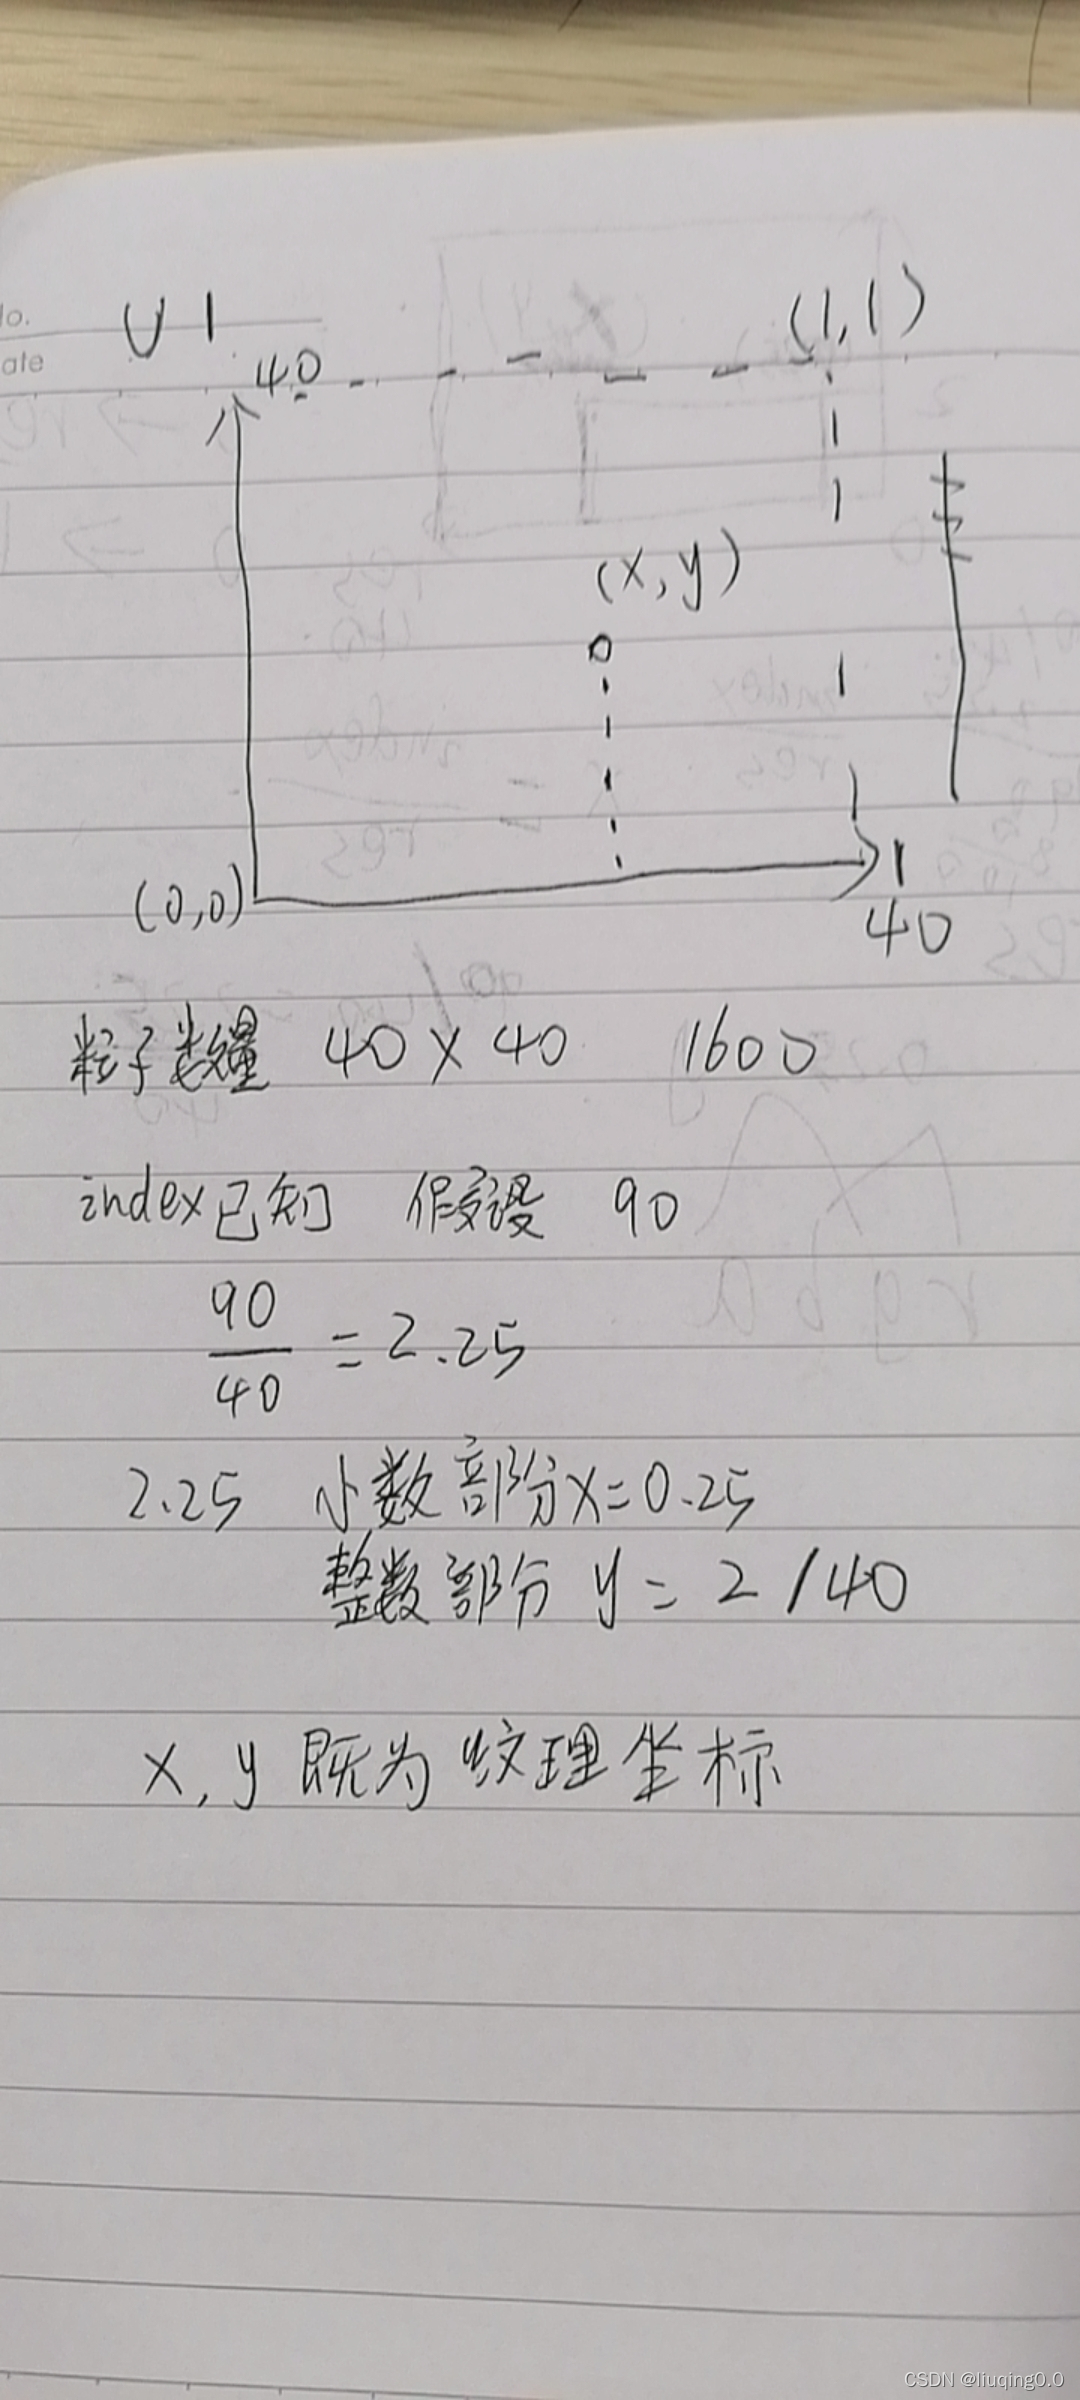 U 1
40
(1,1)
(x,y)
(0,0)
1
40
粒子数量 40×40 1600
index已知 假设 90
90
40
=2.25
2.25 小数部分x=0.25
整数部分 y=2/40
x,y 既为纹理坐标
CSDN @liuqing0.0